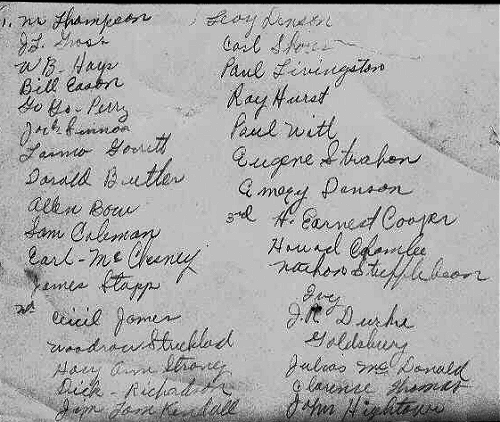 1. Mr Thompson
J.L. Gross
W B - Hays
Bill Eason
Go Go - Perry
Jack
Garrett
Darald Butler
Allen Bow
Sam Coleman
Earl - McChesney
James Stapp
Cecil James
Woodrow Strickland
Ann Strong
Dick - Richardson
Jim Tom Kendall
Leroy Denson
Carl Shores
Paul Livingston
Ray Hurst
Paul Witt
Eugene Strahon
Emezy Denson
3rd H. Earnest Cooper
Howard
Nathon
Ivy
J.R. Durha
Goldsbury
Julius McDonald
Clarence Thomas
John Hightower